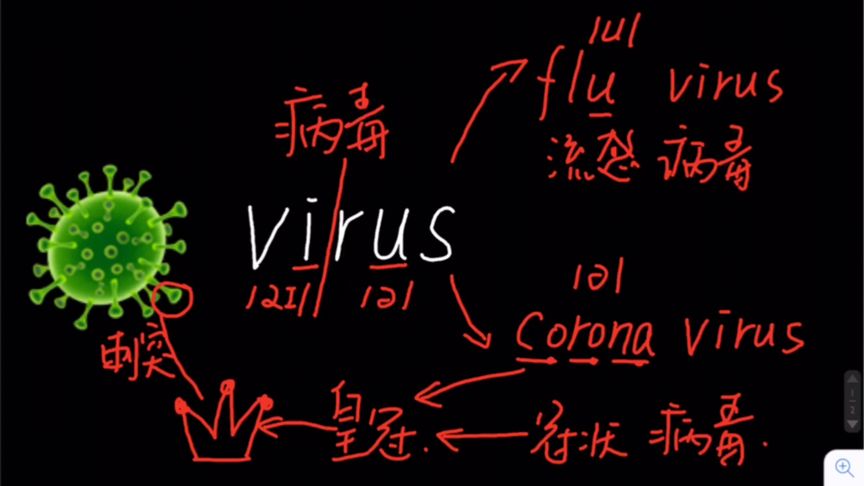 |u|
flu virus
流感 病毒
病毒
virus
|aɪ| |ə|
|ə|
Corona virus
刺突
皇冠. 冠状 病毒.
1
2